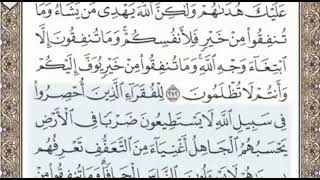 عَلَيْكَ هُدَىٰهُمْ وَلَٰكِنَّ ٱللَّهَ يَهْدِى مَن يَشَآءُ وَمَا
تُنفِقُوا۟ مِنْ خَيْرٍ فَلِأَنفُسِكُمْ وَمَا تُنفِقُونَ إِلَّا
ٱبْتِغَآءَ وَجْهِ ٱللَّهِ وَمَا تُنفِقُوا۟ مِنْ خَيْرٍ يُوَفَّ إِلَيْكُمْ
وَأَنتُمْ لَا تُظْلَمُونَ ٢٧٢ لِلْفُقَرَآءِ ٱلَّذِينَ أُحْصِرُوا۟
فِى سَبِيلِ ٱللَّهِ لَا يَسْتَطِيعُونَ ضَرْبًا فِى ٱلْأَرْضِ
يَحْسَبُهُمُ ٱلْجَاهِلُ أَغْنِيَآءَ مِنَ ٱلتَّعَفُّفِ تَعْرِفُهُم